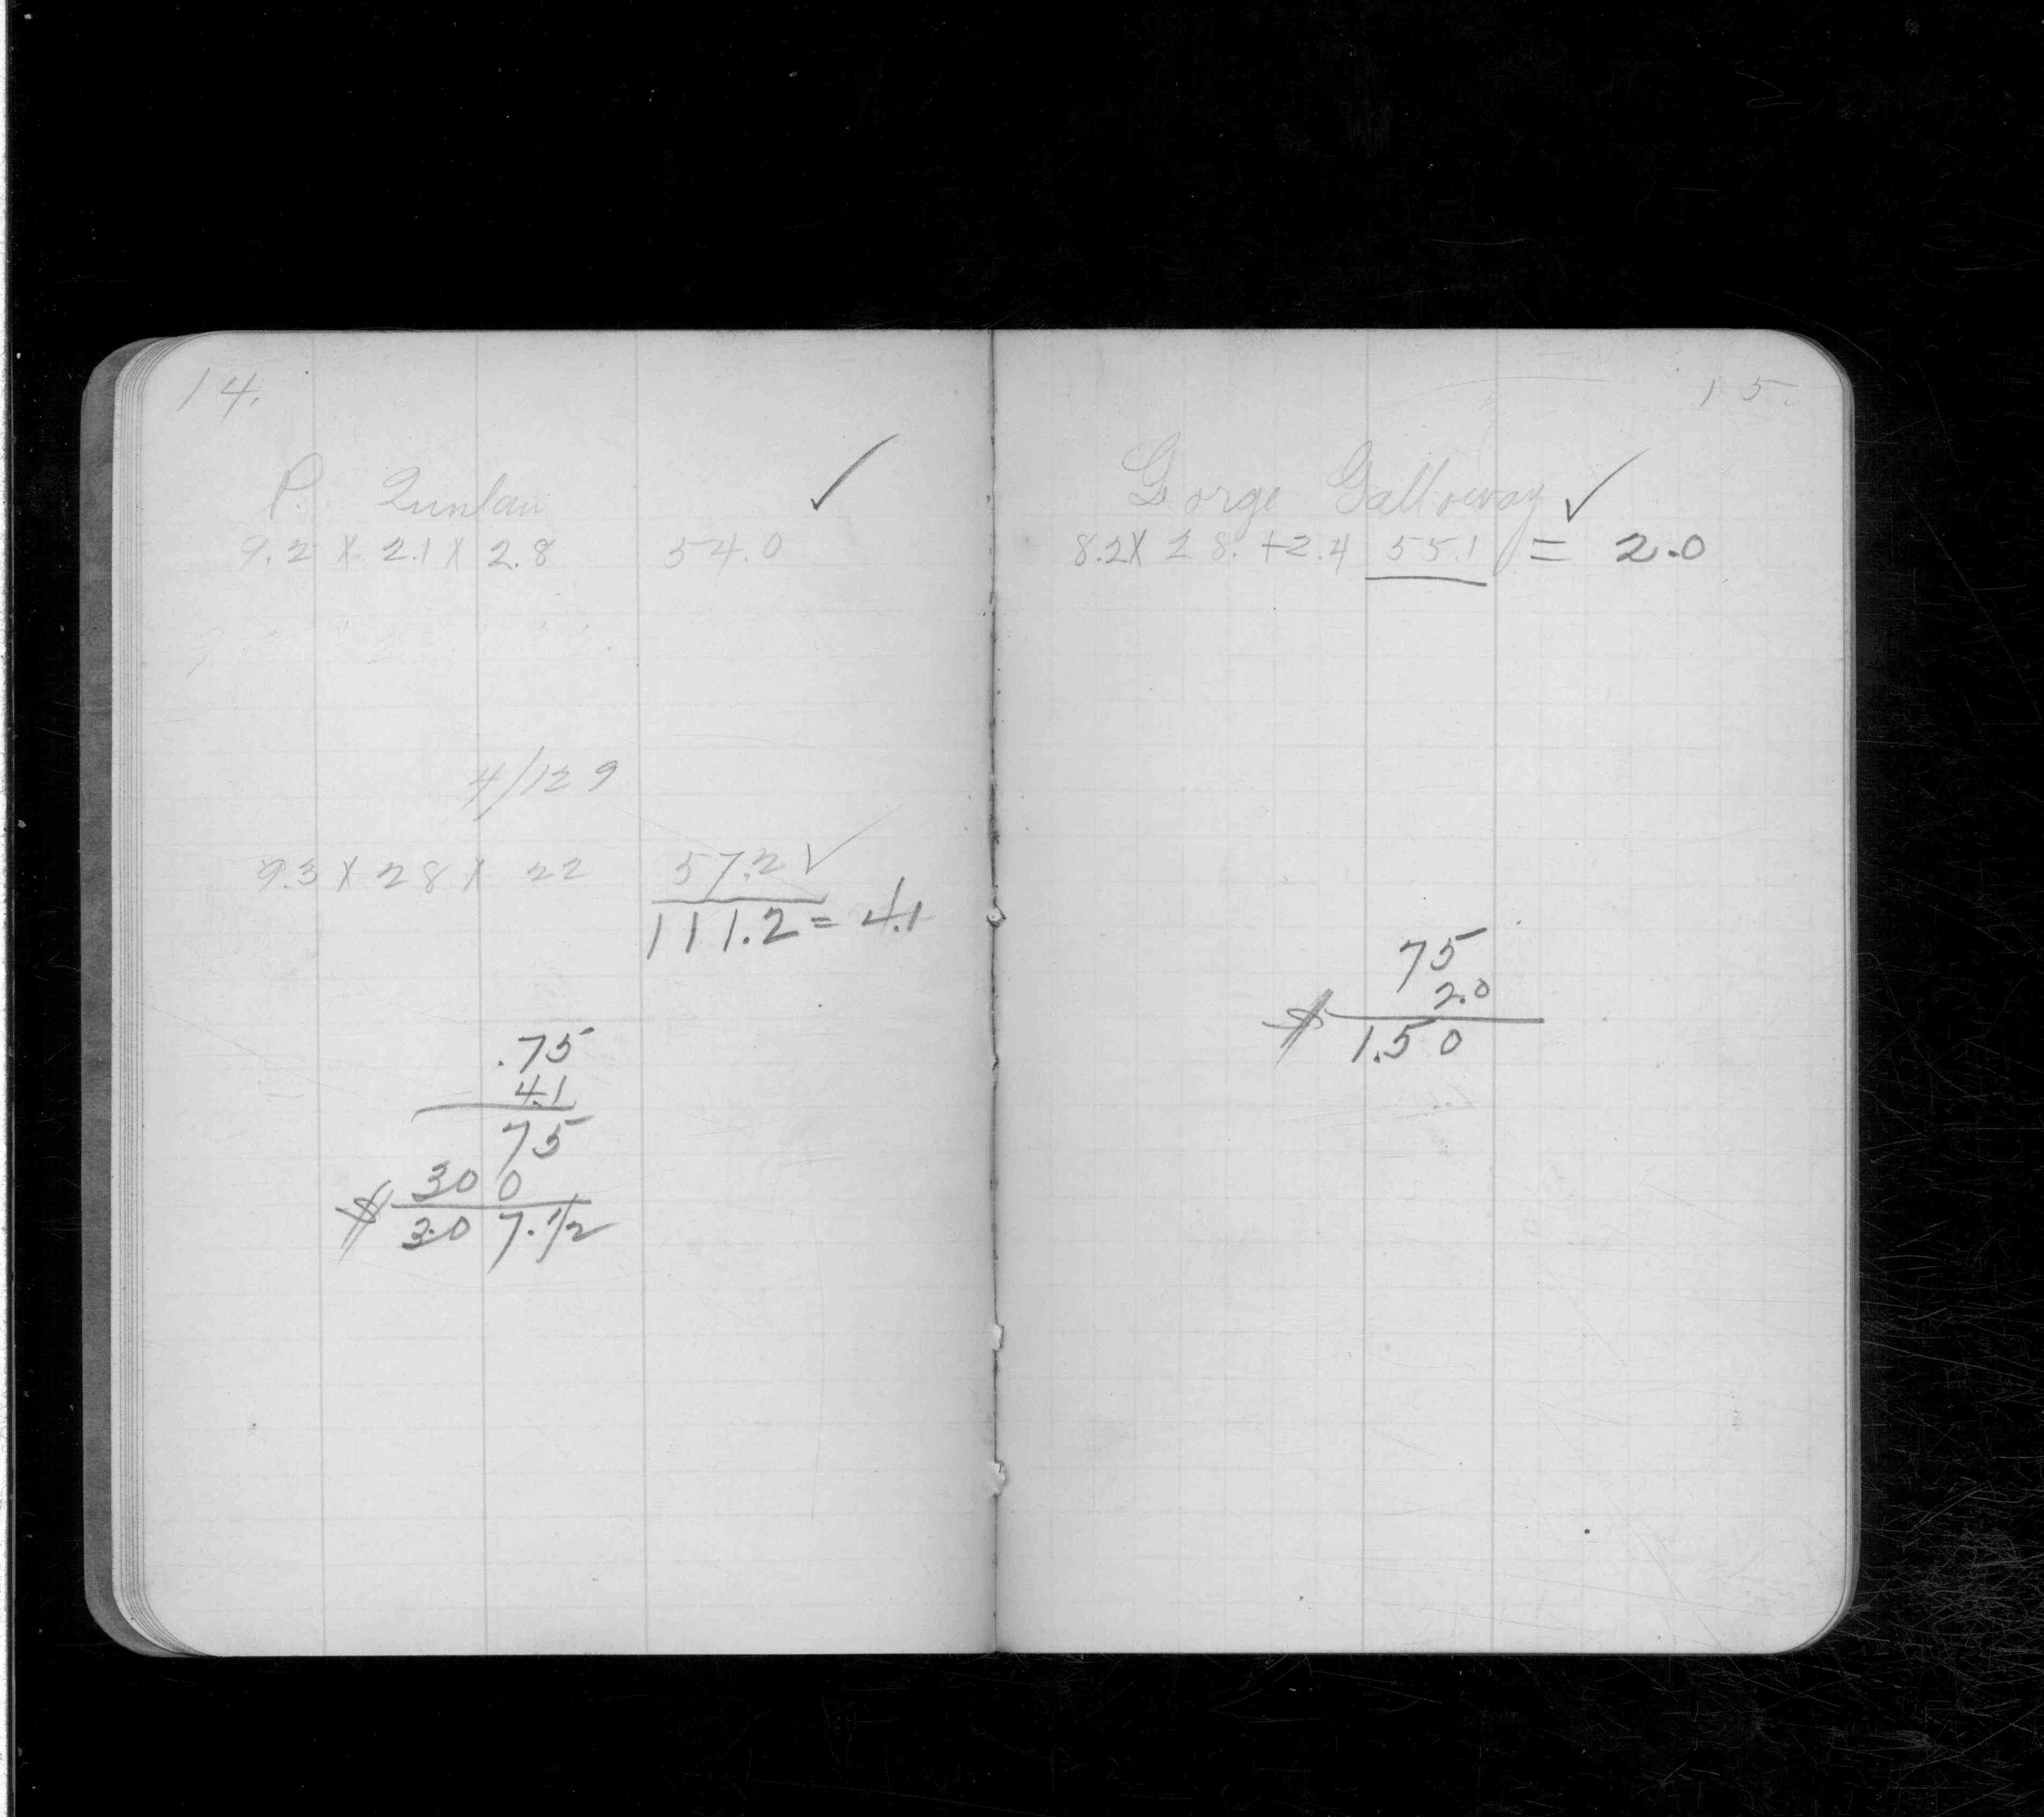 14.
P. Qunlan ✓
9.2 X 2.1 X 2.8 54.0
4/129
9.3 X 28 X 22 57.2 ✓
111.2 = 4.1
.75
4.1
75
300
$ 3.07.1/2
15.
Gorge Galloway ✓
8.2 X 28. + 2.4 55.1 = 2.0
75
2.0
$ 1.50